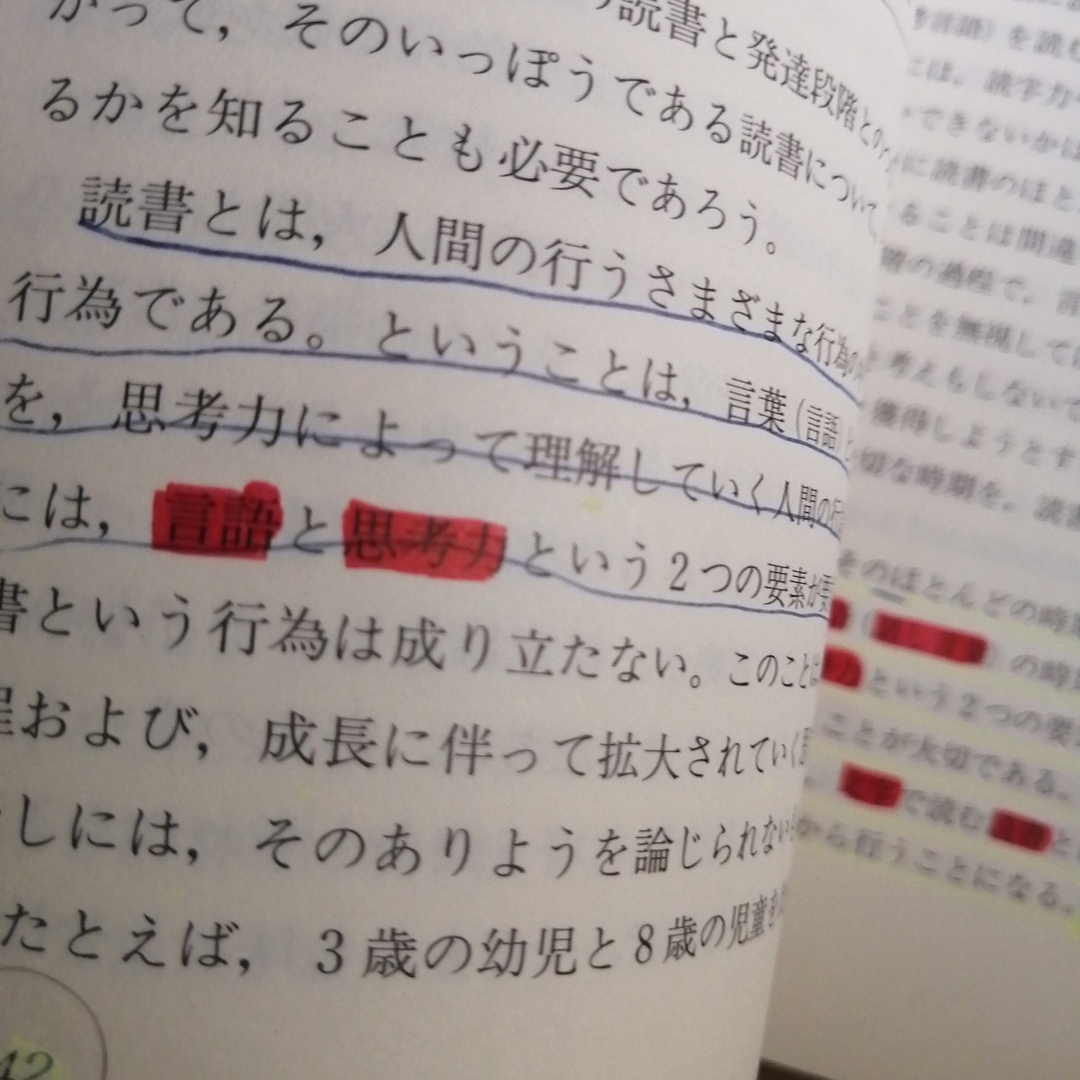 の読書と発達段階との
がって，そのいっぽうである読書について，
るかを知ることも必要であろう。
読書とは，人間の行うさまざまな行為の
行為である。ということは，言葉（言語）
を，思考力によって理解していく人間の行
には，言語と思考力という2つの要素が
書という行為は成り立たない。このことは
および，成長に伴って拡大されていく
しには，そのありようを論じられない
たとえば，3歳の幼児と8歳の児童
42
言語）を読む
には，読字力
できないかは
に読書のほと
ることは間違
階の過程で，言
ことを無視しては
と考えもしないで
獲得しようとす
切な時期を，読書
そのほとんどの時期
の時期
力という2つの要
ことが大切である。
で読む
から行うことになる。